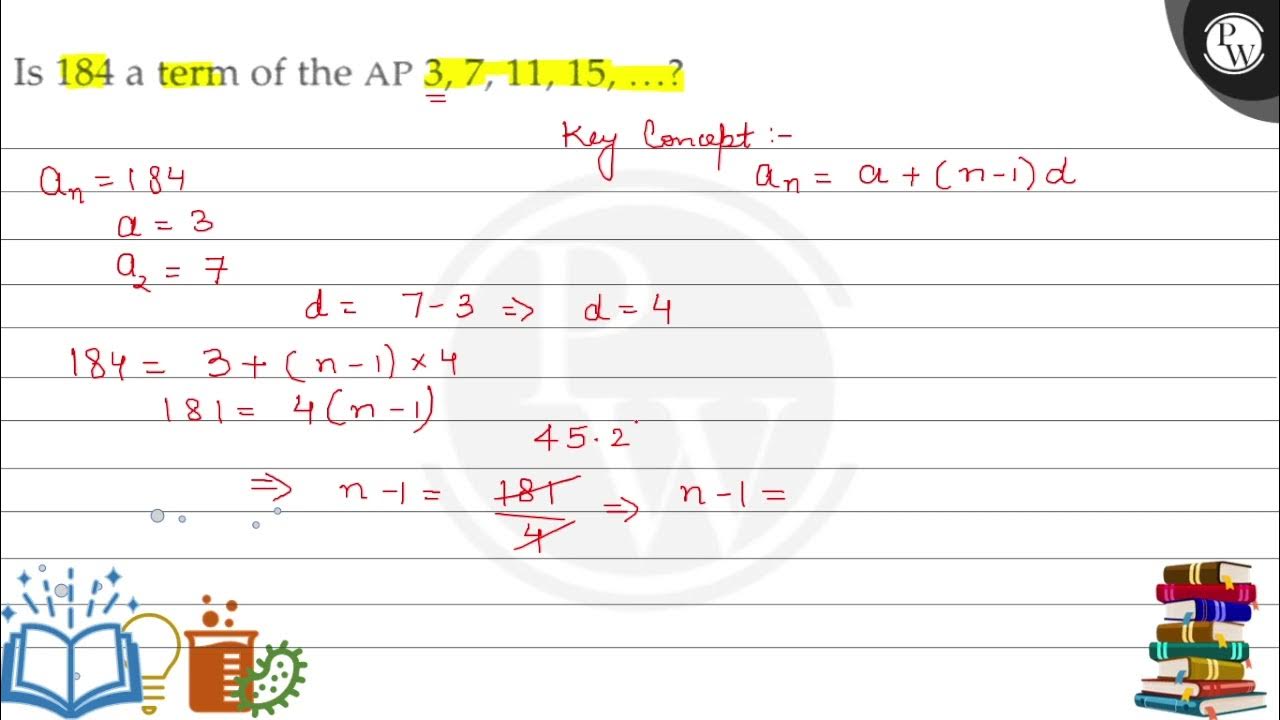 Is 184 a term of the AP 3, 7, 11, 15, …?
PW
Key Concept :-
aₙ = a + (n-1) d
aₙ = 184
a = 3
a₂ = 7
d = 7 - 3 ⇒ d = 4
184 = 3 + (n-1) × 4
181 = 4(n-1)
45.2
⇒ n-1 = 181/4 ⇒ n-1 =
PW